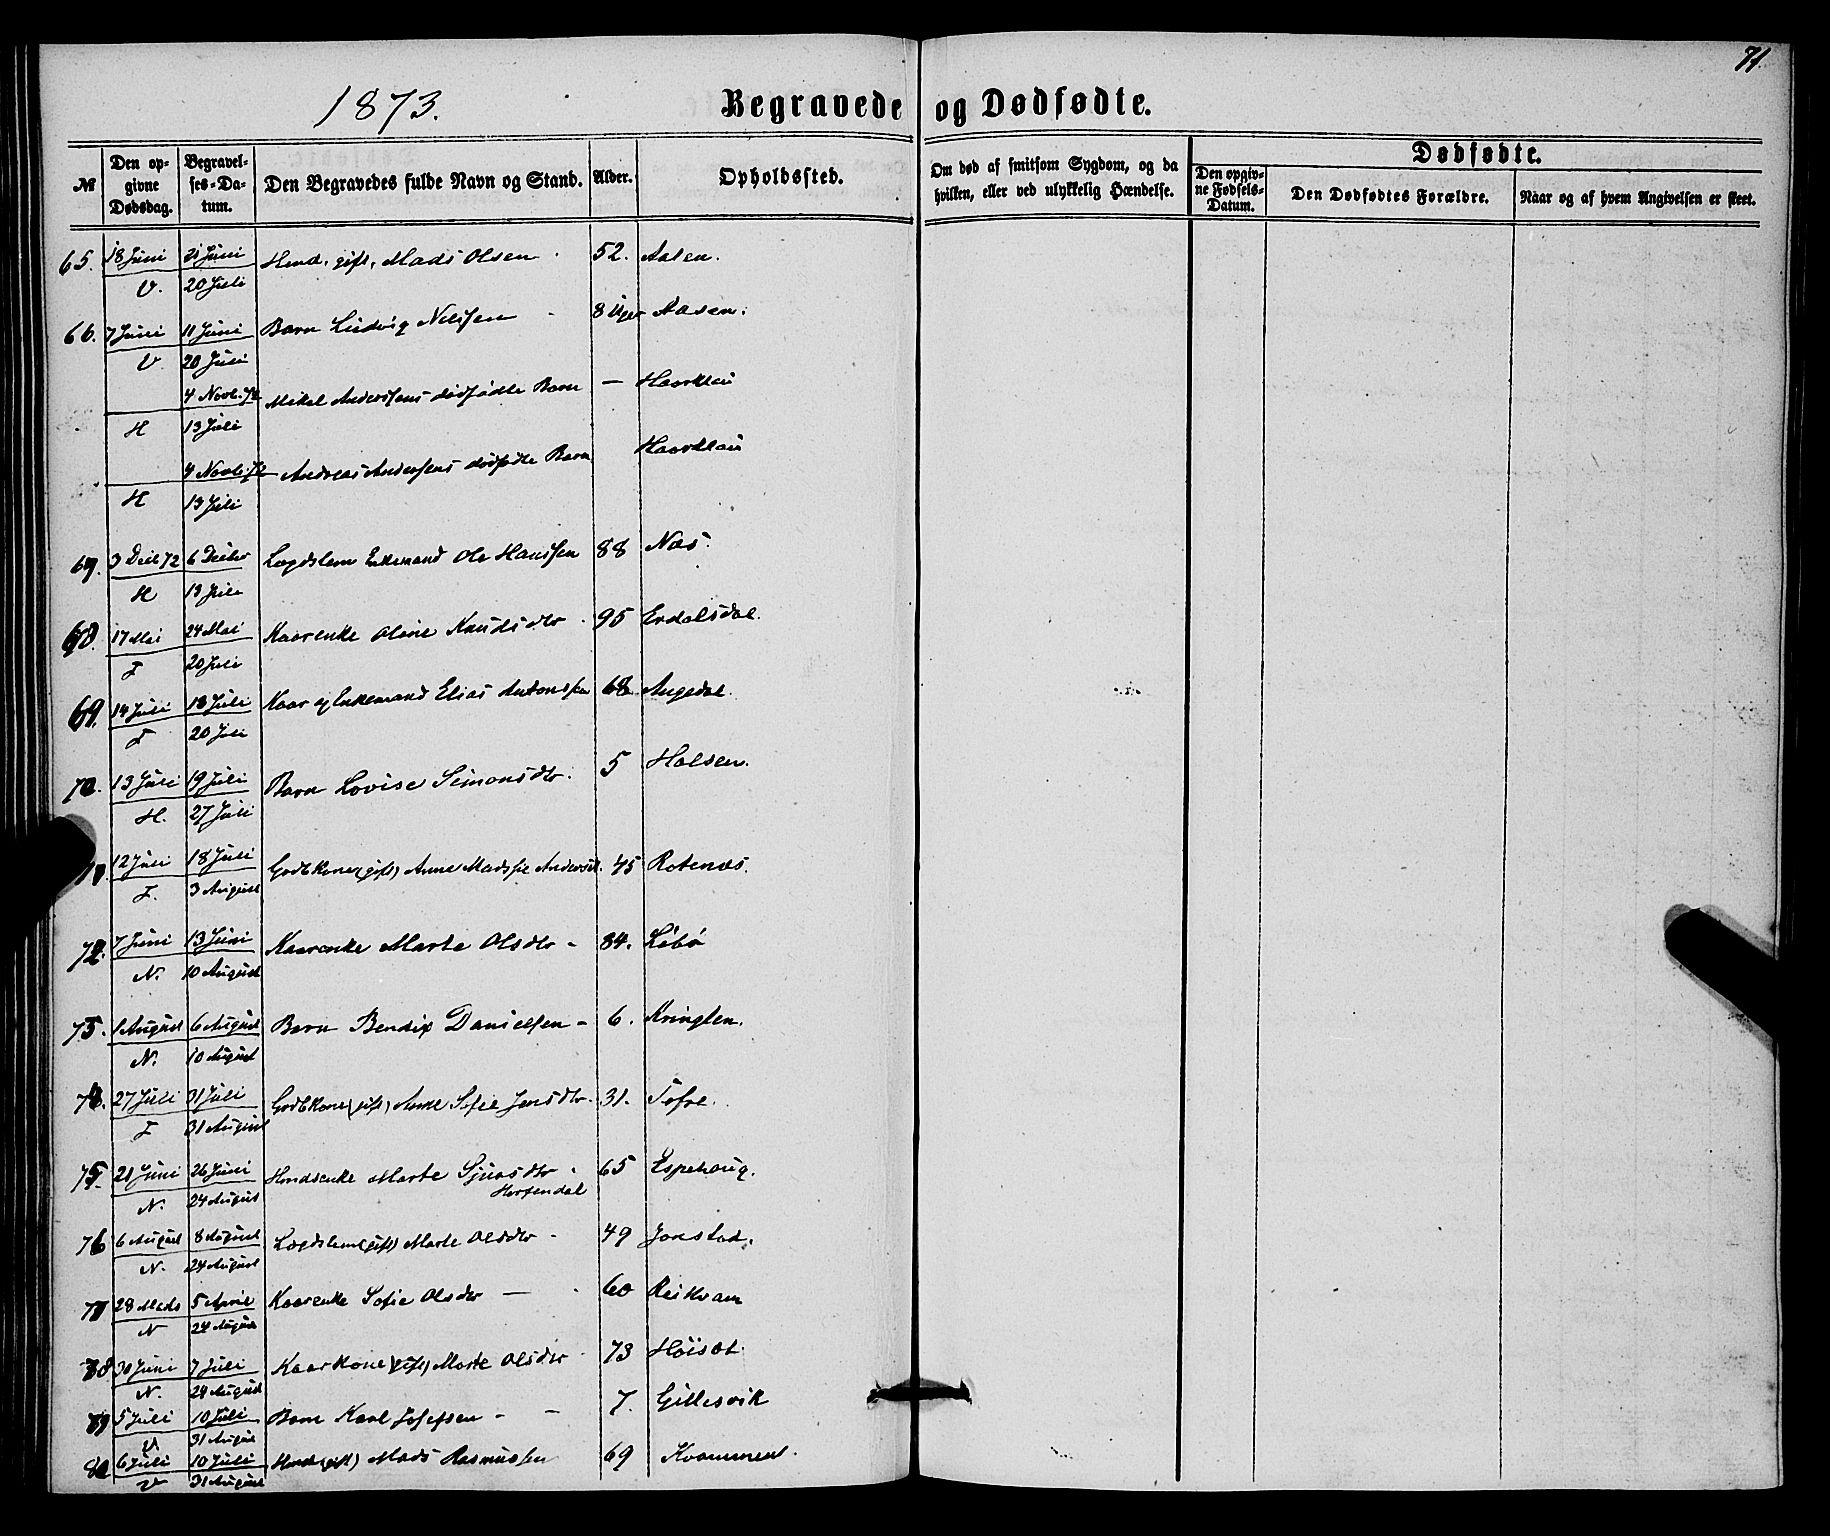 71.
1873.
Begravede og Dødfødte.
№
Den opgivne Dødsdag.
Begravelses-Datum.
Den Begravedes fulde Navn og Stand.
Alder.
Opholdssted.
Om død af smitsom Sygdom, og da hvilken, eller ved ulykkelig Hændelse.
Dødfødte.
Den opgivne Fødsels-Datum.
Den Dødfødtes Forældre.
Naar og af hvem Angivelsen er skeet.
65. 18 Juni 21 Juni gift, Mads Olsen 52. Aasen.
V. 20 Juli
66. 7 Juni 11 Juni Barn Ludvig Nilssen 8 Uger Aasen.
V. 20 Juli
4 Novb. 72 Mikel Anderssens dødfødte Barn — Haarklau
H 13 Juli
4 Novb. 72 Andreas Anderssens dødfødte Barn Haarklau
H 13 Juli
67. 3 Decb 72 6 Decber Lægdslem Enkemand Ole Hanssen 88 Næs.
H 13 Juli
68. 17 Mai 24 Mai Kaarenke Oline Knudsdtr 95 Erdalsdal.
F 20 Juli
69. 14 Juli 18 Juli Kaar og Enkemand Elias Antonssen 68 Angedal.
F 20 Juli
70. 13 Juli 19 Juli Barn Lovise Simonsdtr. 5 Holsen.
H. 27 Juli
71. 12 Juli 18 Juli Gdbkone (gift) Anne Andersdt. 45 Rotenæs.
F. 3 August
72. 7 Juni 13 Juni Kaarenke Marte Olsdtr - 84. Løbø
N. 10 August
73. 1 August 6 August Barn Bendix Danielsen - 6. Kringlen.
N. 10 August
74. 27 Juli 31 Juli Gdbkone (gift) Anne Sofie Jensdtr. 31. Tefre.
F 31 August
75. 21 Juni 26 Juni Marte Sjursdtr 65 Espehoug.
N. 24 August Horsendal
76 6 August 8 August Lægdslem (gift) Marte Olsdtr - 49 Jonstad.
N. 24 August
77 28 Marts 5 April Kaarenke Sofie Olsdtr — 60 Reikvam
N 24 August
78 30 Juni 7 Juli Kaarkone (gift) Marte Olsdtr 73 Høisæt.
N. 24 August
79 5 Juli 10 Juli Barn Karl Josefsen - - 7. Gillesvik
V 31 August
80 6 Juli 10 Juli (gift) Mads Rasmussen 69 Kvammen.
V 31 August